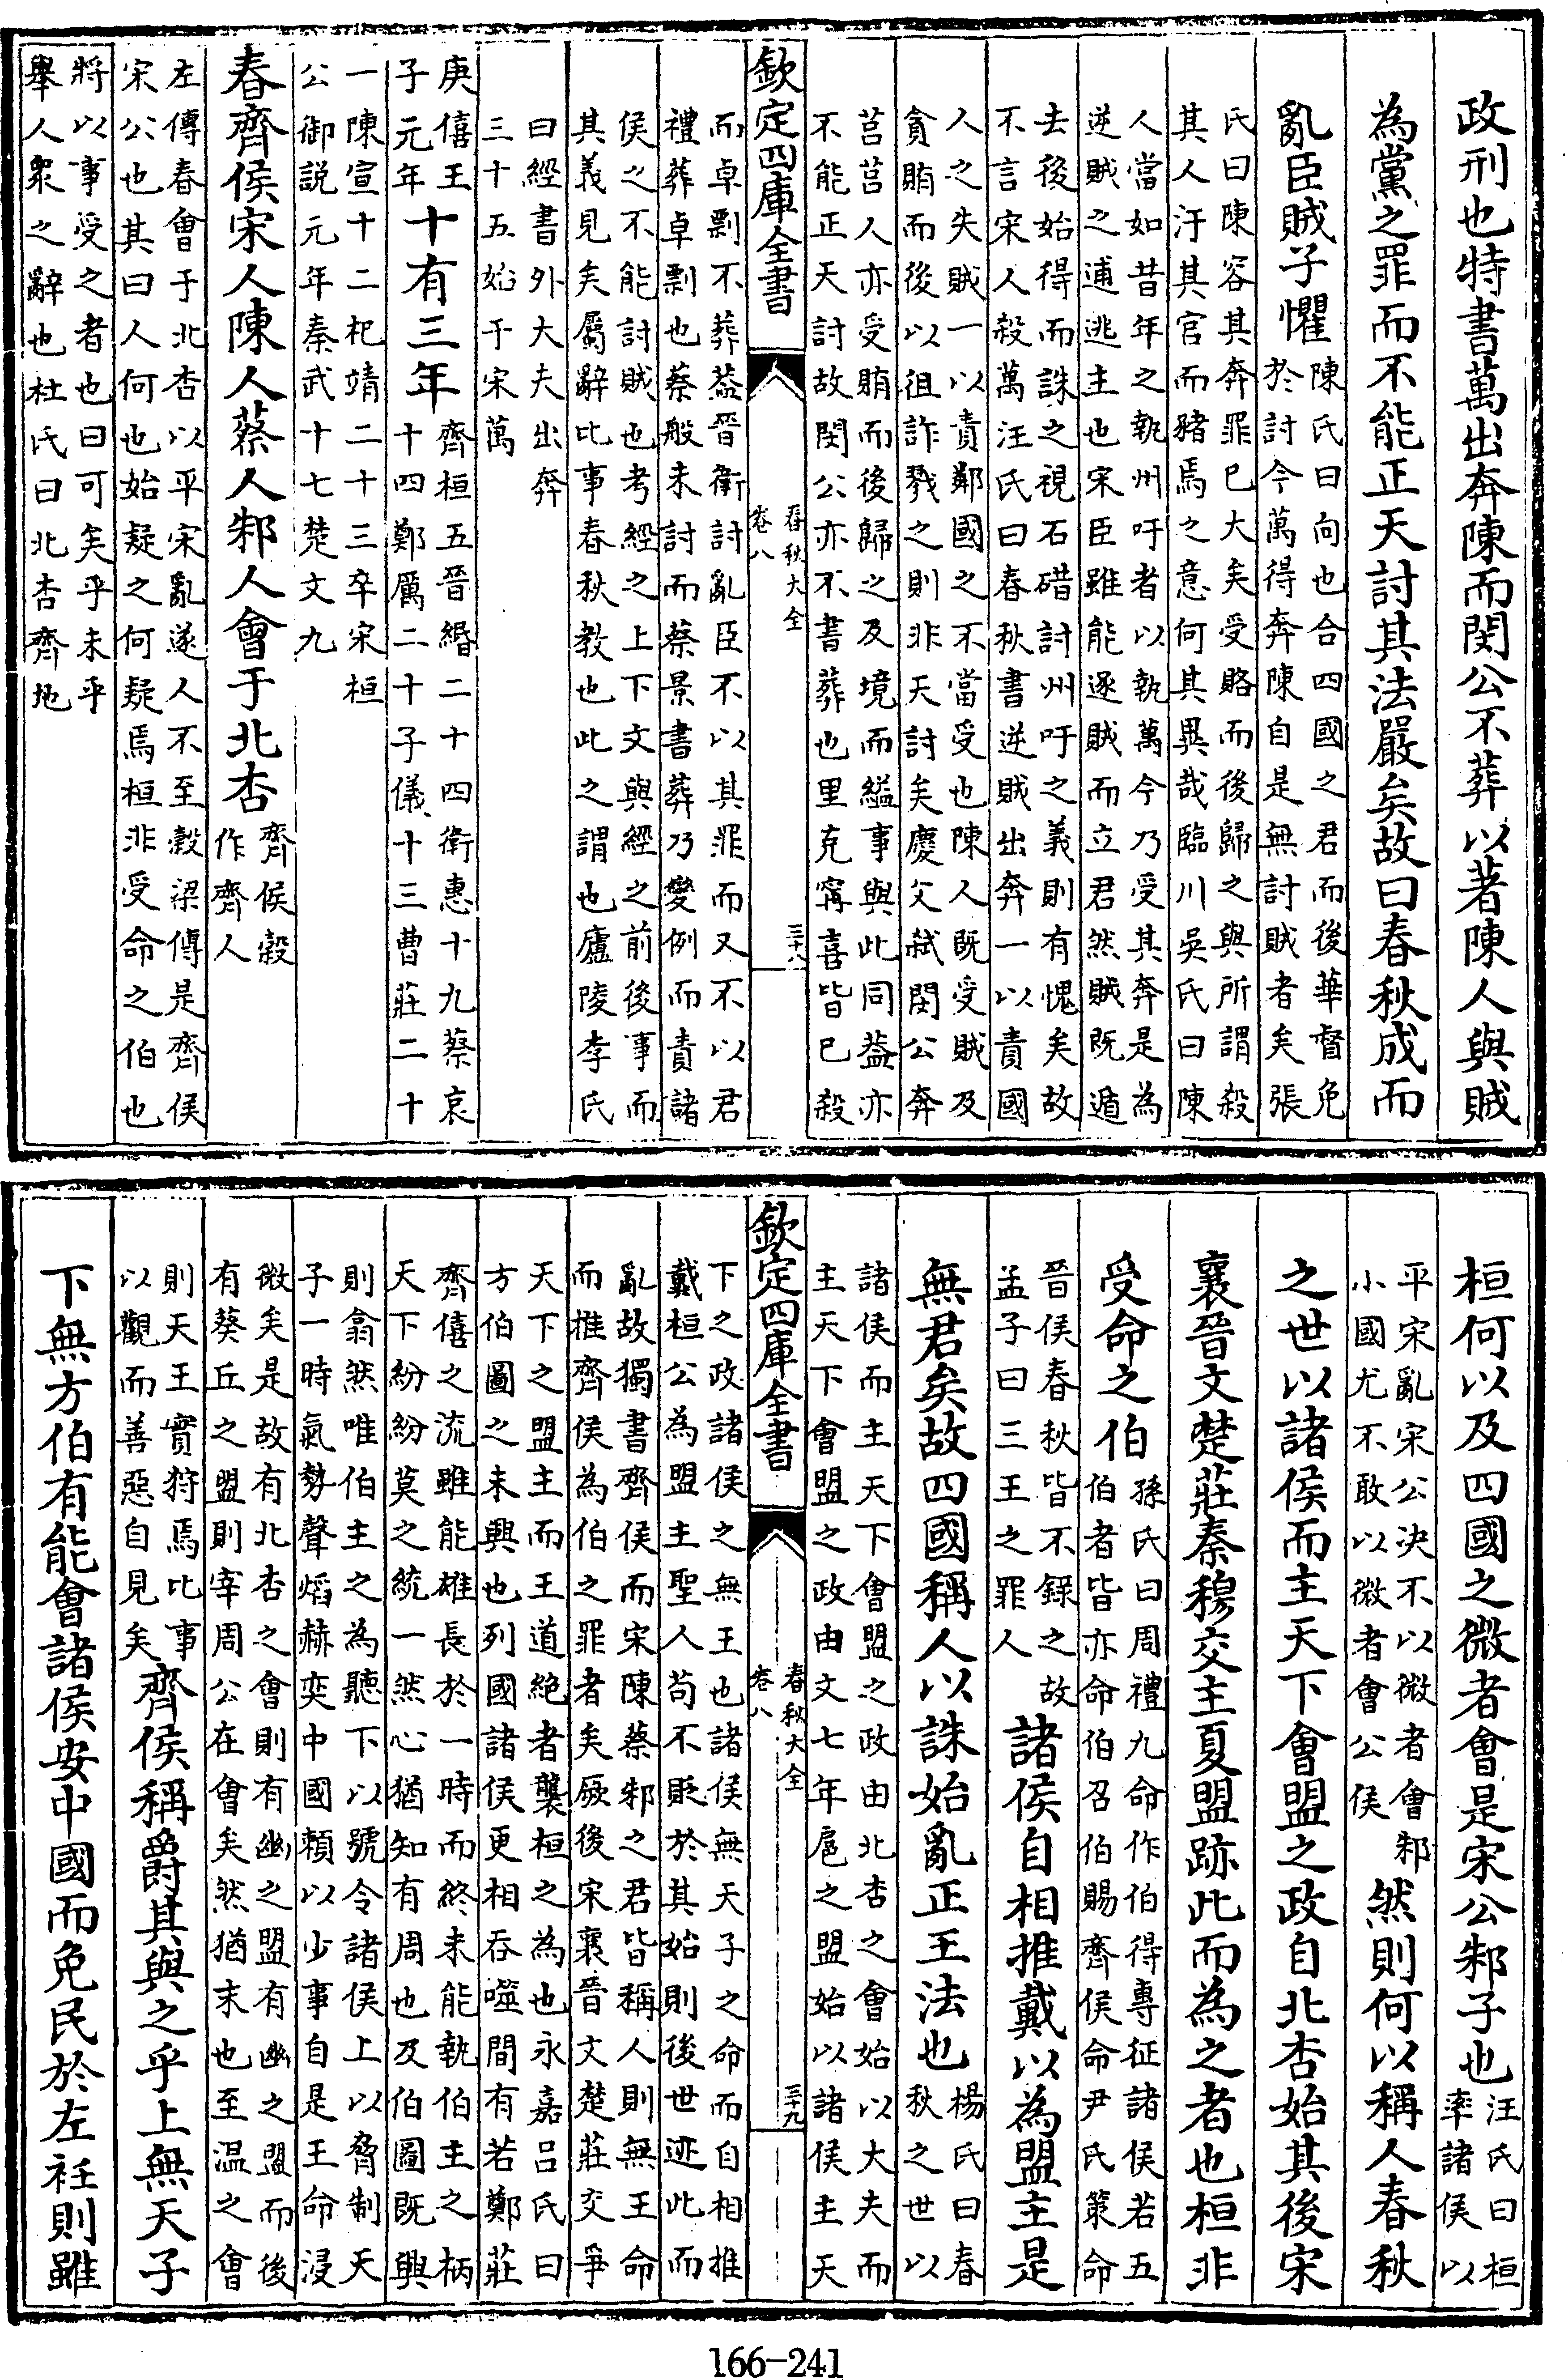 政刑也特書萬出奔陳而閔公不葬以著陳人與賊
為黨之罪而不能正天討其法嚴矣故曰春秋成而
亂臣賊子懼陳氏曰向也合四國之君而後華督免
於討今萬得奔陳自是無討賊者矣張
氏曰陳容其奔罪已大矣受賂而後歸之與所謂殺
其人汙其官而豬焉之意何其異哉臨川吳氏曰陳
人當如昔年之執州吁者以執萬今乃受其奔是為
逆賊之逋逃主也宋臣雖能逐賊而立君然賊既遁
去後始得而誅之視石碏討州吁之義則有愧矣故
不言宋人殺萬汪氏曰春秋書逆賊出奔一以責國
人之失賊一以責鄰國之不當受也陳人既受賊及
貪賄而後以徂詐戮之則非天討矣慶父弑閔公奔
莒莒人亦受賄而後歸之及境而縊事與此同葢亦
不能正天討故閔公亦不書葬也里克甯喜皆已殺
欽定四庫全書
春秋大全
卷八
三十八
而卓剽不葬葢晉衛討亂臣不以其罪而又不以君
禮葬卓剽也蔡般未討而蔡景書葬乃變例而責諸
侯之不能討賊也考經之上下文與經之前後事而
其義見矣屬辭比事春秋教也此之謂也廬陵李氏
曰經書外大夫出奔
三十五始于宋萬
庚僖王
子元年十有三年齊桓五晉緡二十四衛惠十九蔡哀
十四鄭厲二十子儀十三曹莊二十
一陳宣十二杞靖二十三卒宋桓
公御説元年秦武十七楚文九
春齊侯宋人陳人蔡人邾人會于北杏齊侯穀
作齊人
左傳春會于北杏以平宋亂遂人不至穀梁傳是齊侯
宋公也其曰人何也始疑之何疑焉桓非受命之伯也
將以事受之者也曰可矣乎未乎
舉人衆之辭也杜氏曰北杏齊地
桓何以及四國之微者會是宋公邾子也汪氏曰桓
率諸侯以
平宋亂宋公决不以微者會邾
小國尤不敢以微者會公侯然則何以稱人春秋
之世以諸侯而主天下會盟之政自北杏始其後宋
襄晉文楚莊秦穆交主夏盟跡此而為之者也桓非
受命之伯孫氏曰周禮九命作伯得專征諸侯若五
伯者皆亦命伯召伯賜齊侯命尹氏策命
晉侯春秋皆不録之故
孟子曰三王之罪人諸侯自相推戴以為盟主是
無君矣故四國稱人以誅始亂正王法也楊氏曰春
秋之世以
諸侯而主天下會盟之政由北杏之會始以大夫而
主天下會盟之政由文七年扈之盟始以諸侯主天
欽定四庫全書
春秋大全
卷八
三十九
下之政諸侯之無王也諸侯無天子之命而自相推
戴桓公為盟主聖人苟不貶於其始則後世迹此而
亂故獨書齊侯而宋陳蔡邾之君皆稱人則無王命
而推齊侯為伯之罪者矣厥後宋襄晉文楚莊交爭
天下之盟主而王道絶者襲桓之為也永嘉吕氏曰
方伯圖之未興也列國諸侯更相吞噬間有若鄭莊
齊僖之流雖能雄長於一時而終未能執伯主之柄
天下紛紛莫之統一然心猶知有周也及伯圖既興
則翕然唯伯主之為聽下以號令諸侯上以脅制天
子一時氣勢聲熖赫奕中國頼以少事自是王命浸
微矣是故有北杏之會則有幽之盟有幽之盟而後
有葵丘之盟則宰周公在會矣然猶末也至温之會
則天王實狩焉比事
以觀而善惡自見矣齊侯稱爵其與之乎上無天子
下無方伯有能會諸侯安中國而免民於左衽則雖
166-241